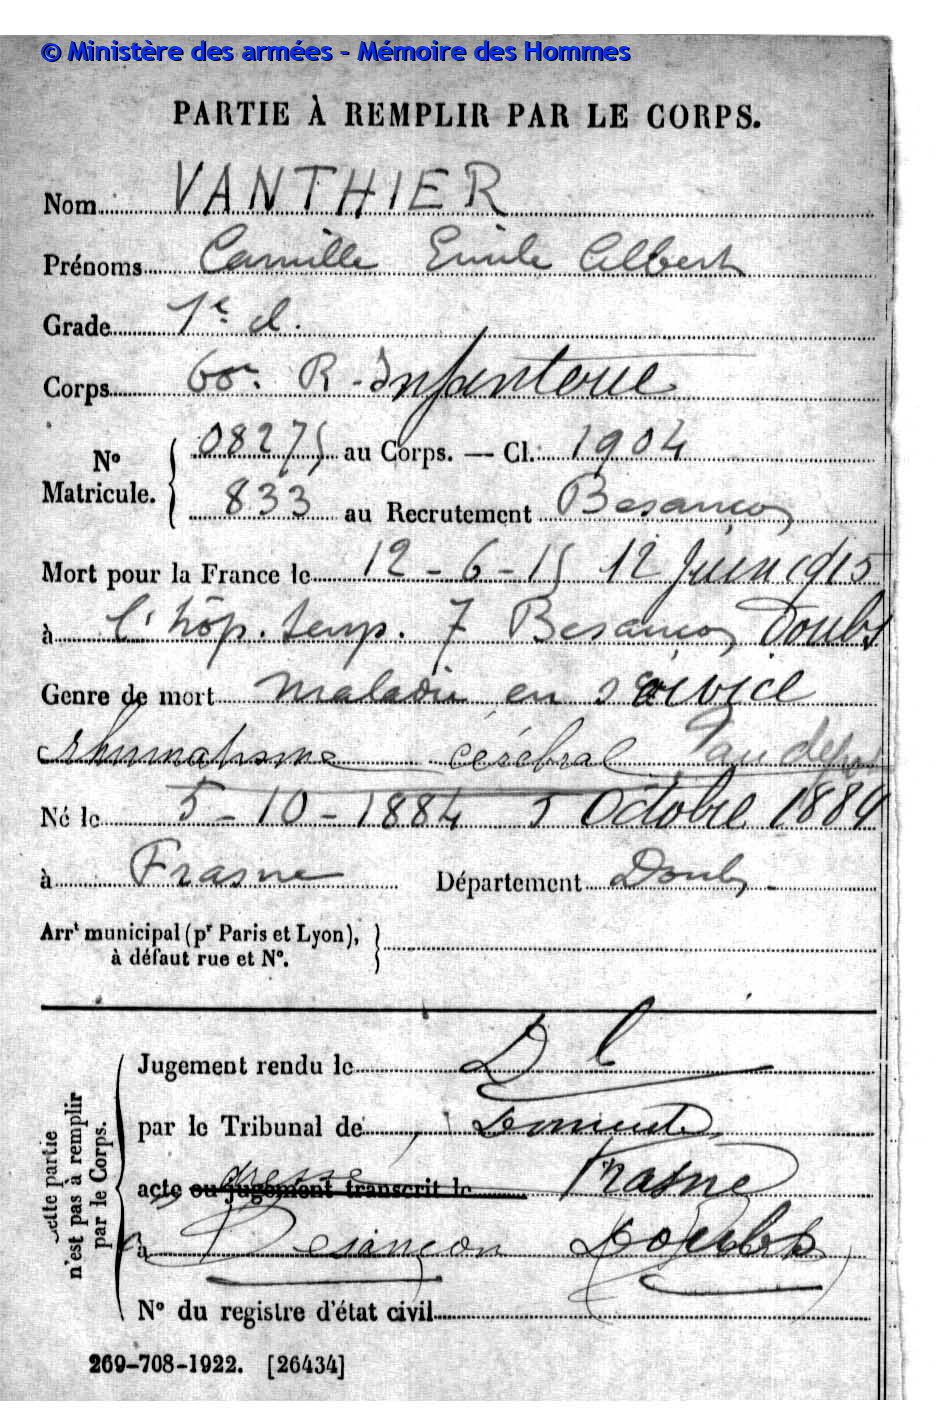 © Ministère des armées - Mémoire des Hommes
PARTIE À REMPLIR PAR LE CORPS.
Nom VANTHIER
Prénoms Camille Emile Albert
Grade 1e cl.
Corps 60e R. Infanterie
No Matricule. 08275 au Corps. — Cl. 1904
833 au Recrutement Besançon
Mort pour la France le 12-6-15 12 Juin 1915
à l'hôp. temp. 7 Besançon Doubs
Genre de mort maladie en service
rhumatisme cérébral
Né le 5-10-1884 5 Octobre 1884
à Frasne Département Doubs.
Arrt municipal (pr Paris et Lyon),
à défaut rue et No.
Cette partie
n'est pas à remplir
par le Corps.
Jugement rendu le D C
par le Tribunal de
acte ou jugement transcrit le Frasne
à Besançon Doubs
No du registre d'état civil
269-708-1922. [26434]